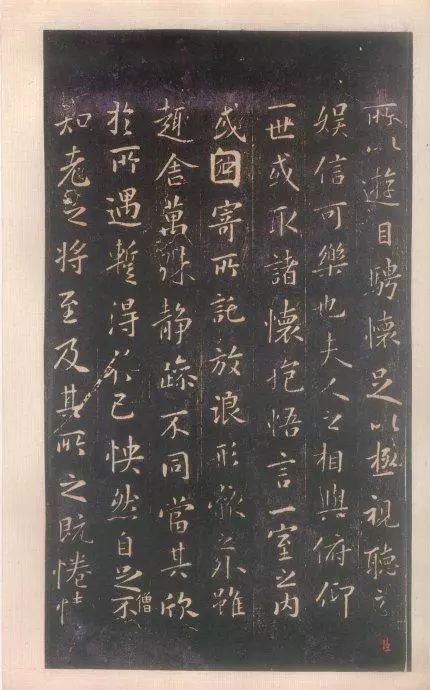 所以遊目騁懷足以極視聽之
娛信可樂也夫人之相與俯仰
一世或取諸懷抱悟言一室之内
或因寄所託放浪形骸之外雖
趣舍萬殊静躁不同當其欣
於所遇蹔得於己怏然自足不
僧
知老之将至及其所之既惓情